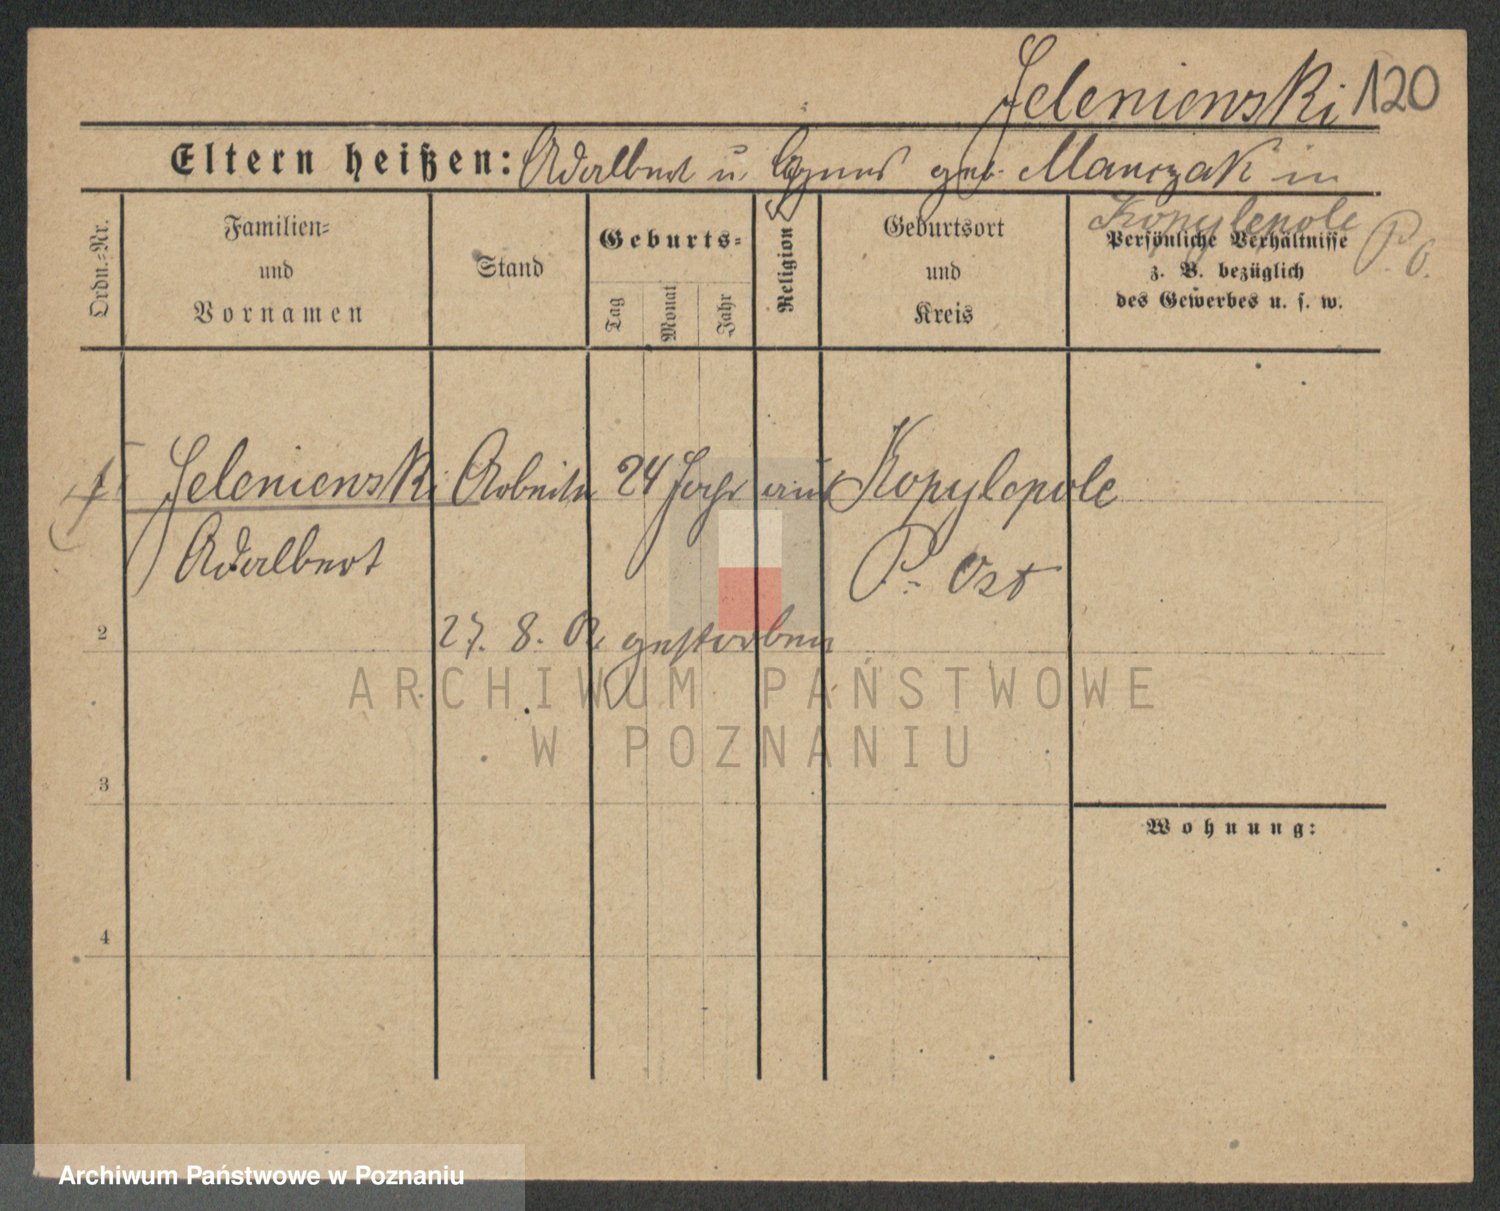 Jelenienski 120
Eltern heißen: Adalbert u. Agnes geb. Manczak in
Kopylepole P. O.
Ordn.-Nr.
Familien-
und
Vornamen
Stand
Geburts-
Tag
Monat
Jahr
Religion
Geburtsort
und
Kreis
Persönliche Verhältnisse
z. B. bezüglich
des Gewerbes u. s. w.
Jelenienski Arbeiter 24 Jahr aus Kopylepole
Adalbert P. Ost
2
27. 8. 02 gestorben
ARCHIWUM PAŃSTWOWE
W POZNANIU
3
Wohnung:
4
Archiwum Państwowe w Poznaniu